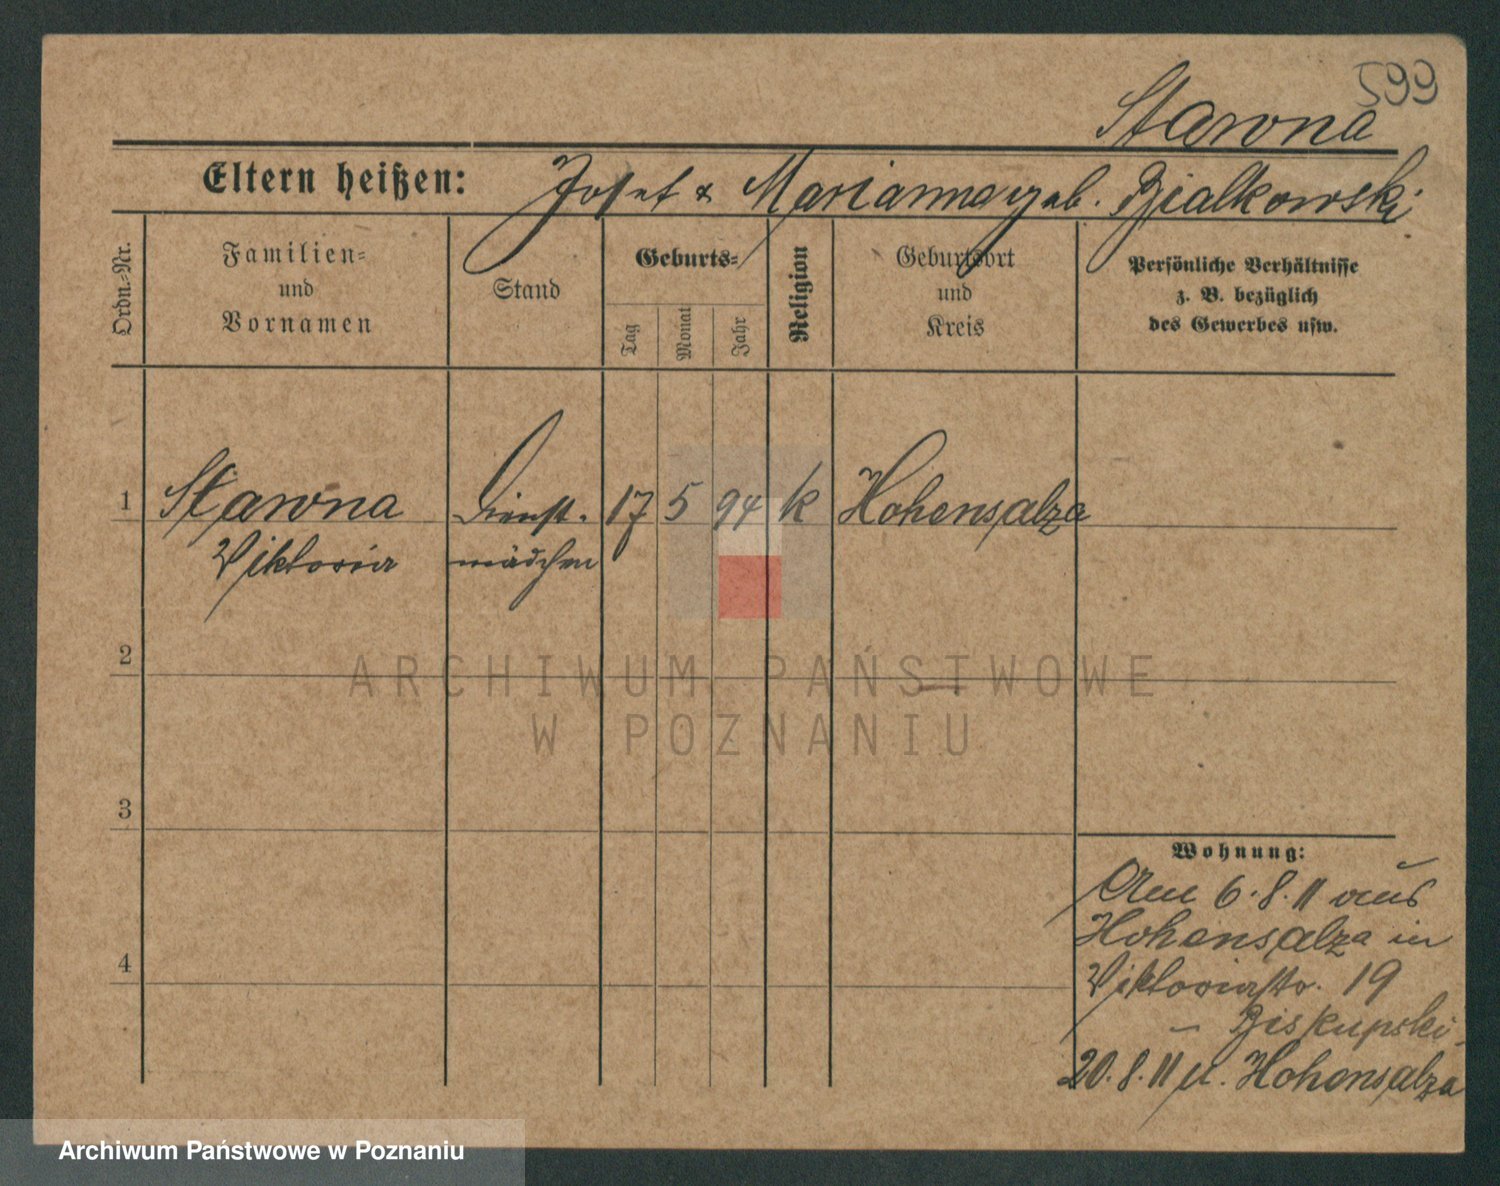 599
Stawna
Eltern heißen: Josef & Marianna geb. Bialkowski
Ordn.-Nr.
Familien-
und
Vornamen
Stand
Geburts-
Tag
Monat
Jahr
Religion
Geburtsort
und
Kreis
Persönliche Verhältnisse
z. B. bezüglich
des Gewerbes usw.
1 Stawna Dienst- 17 5 94 k Hohensalza
Viktoria mädchen
2
3
4
Wohnung:
Am 6.8.11 aus
Hohensalza in
Viktoriastr. 19
- Biskupski.
20.8.11 n. Hohensalza
ARCHIWUM PAŃSTWOWE
W POZNANIU
Archiwum Państwowe w Poznaniu